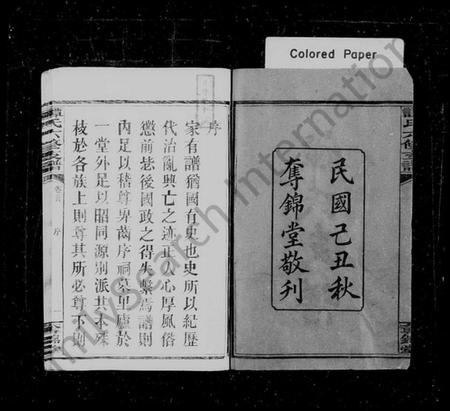 Colored Paper
民國己丑秋
奪錦堂敬刊
序
家有譜猶國有史也史所以紀歷
代治亂興亡之迹正人心厚風俗
懲前毖後國政之得失繫焉譜則
內足以稽尊卑萬序祠墓里廬於
一堂外足以昭同源別派共本
枝於各族上則尊其所必尊下則
氏六修支譜
卷首
序